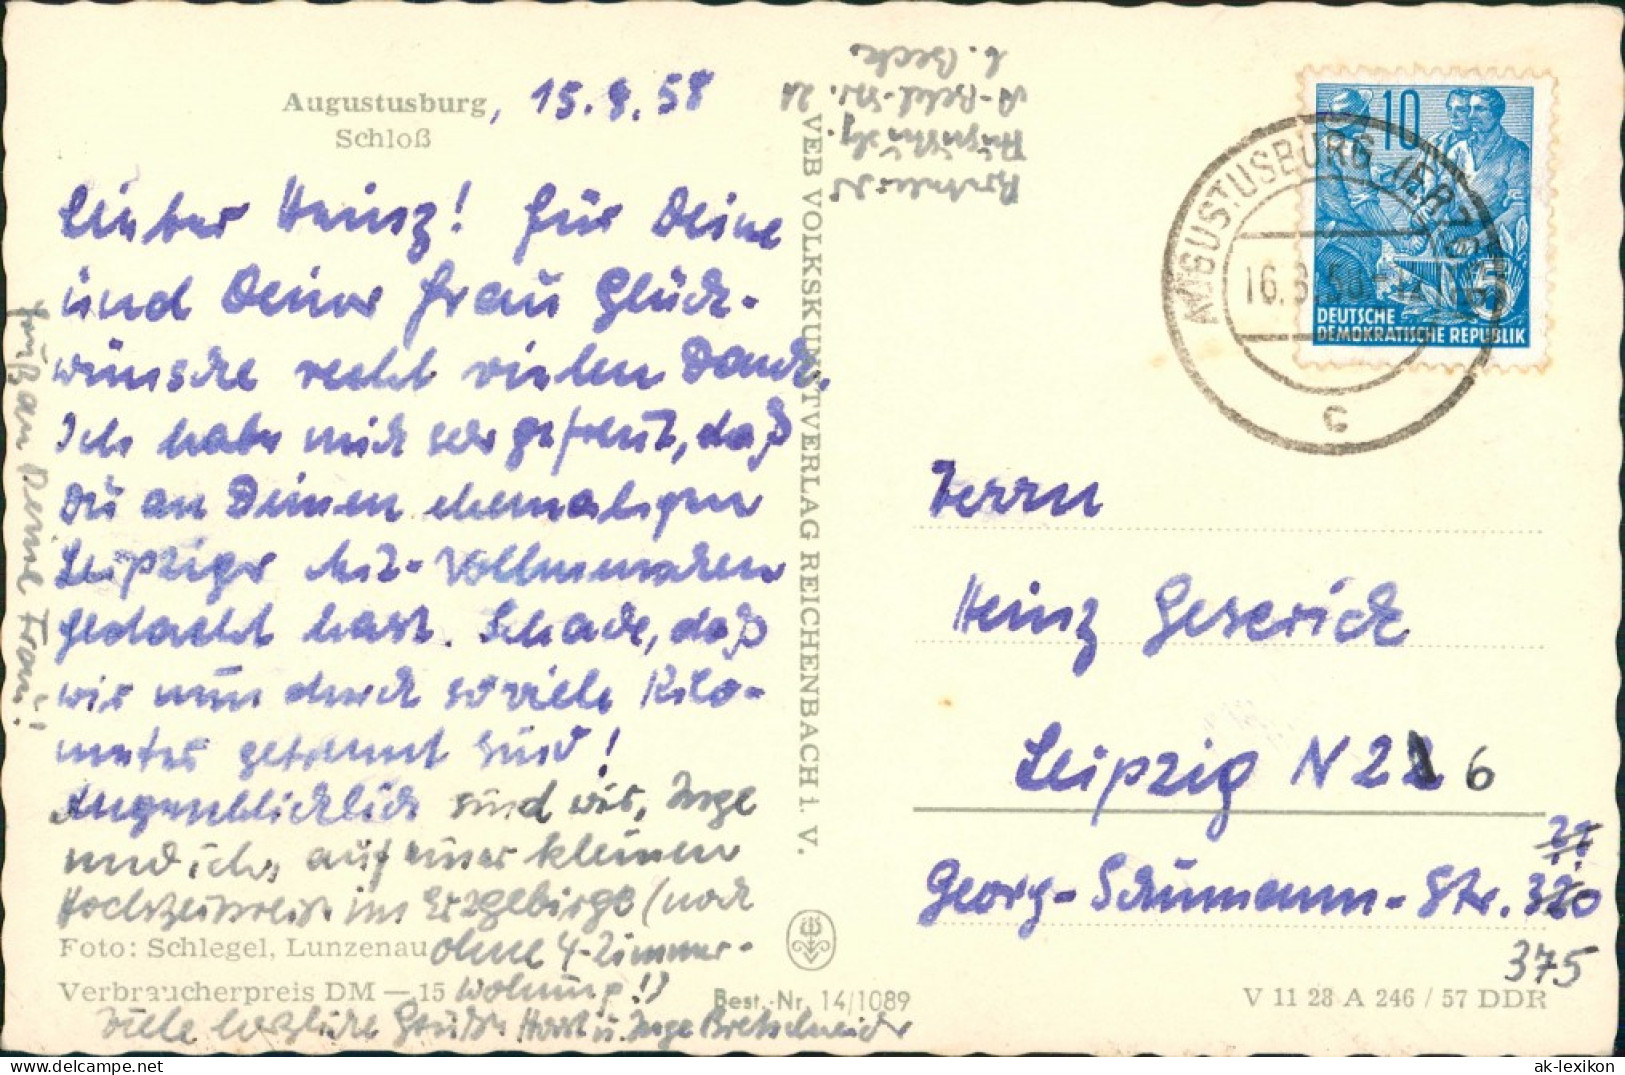 Augustusburg, 15.8.58
Schloß
Lieber Heinz! Für Deine
und Deiner Frau Glück-
wünsche recht vielen Dank.
Ich habe mich sehr gefreut, daß
Du an Deinen ehemaligen
Leipziger
gedacht hast. Schade, daß
wir nun durch so viele Kilo-
meter getrennt sind!
Augenblicklich sind wir, Inge
und ich, auf einer kleinen
Hochzeitsreise im Erzgebirge (noch
ohne 4-Zimmer-
Wohnung!)
Viele herzliche Grüße Horst u. Inge Bretschneider
Gruß an Deine Frau!
Foto: Schlegel, Lunzenau
Verbraucherpreis DM —15
Best.-Nr. 14/1089
VEB VOLKSKUNSTVERLAG REICHENBACH i. V.
10
5
DEUTSCHE
DEMOKRATISCHE REPUBLIK
AUGUSTUSBURG (ERZGEB)
c
Herrn
Heinz Geserick
Leipzig N22 6
Georg-Schumann-Str. 320
375
V 11 28 A 246 / 57 DDR
ak-lexikon